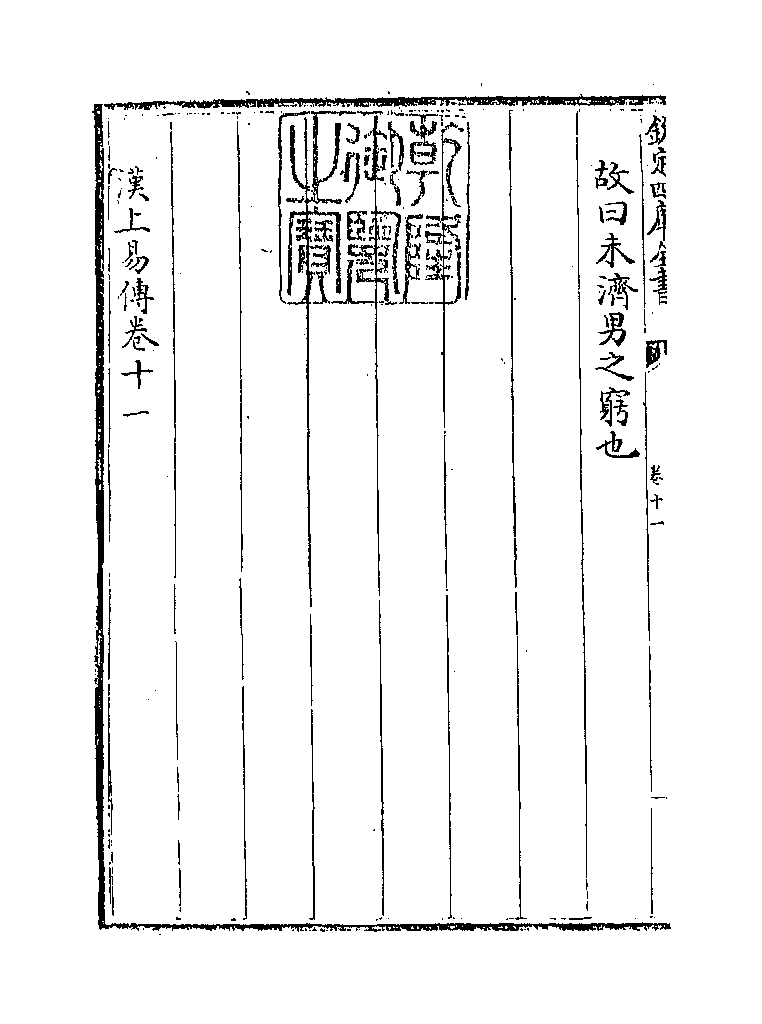 欽定四庫全書
卷十一
故曰未濟男之窮也
乾隆御覽之寶
漢上易傳卷十一